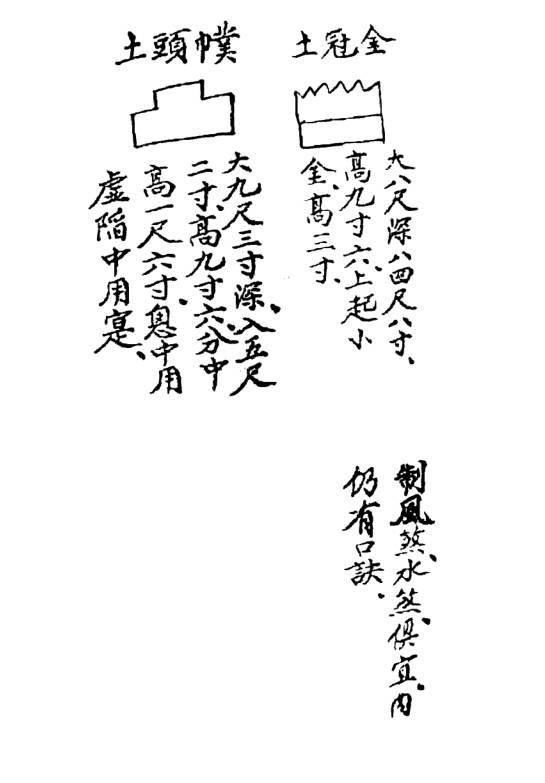 金冠土
大八尺深八四尺八寸、
高九寸六、上起小
金、高三寸、
幞頭土
大九尺三寸深、入五尺
二寸、高九寸六分中
高一尺六寸、息中用
虛陷中用寔、
制風煞、水煞、俱宜、内
仍有口訣、